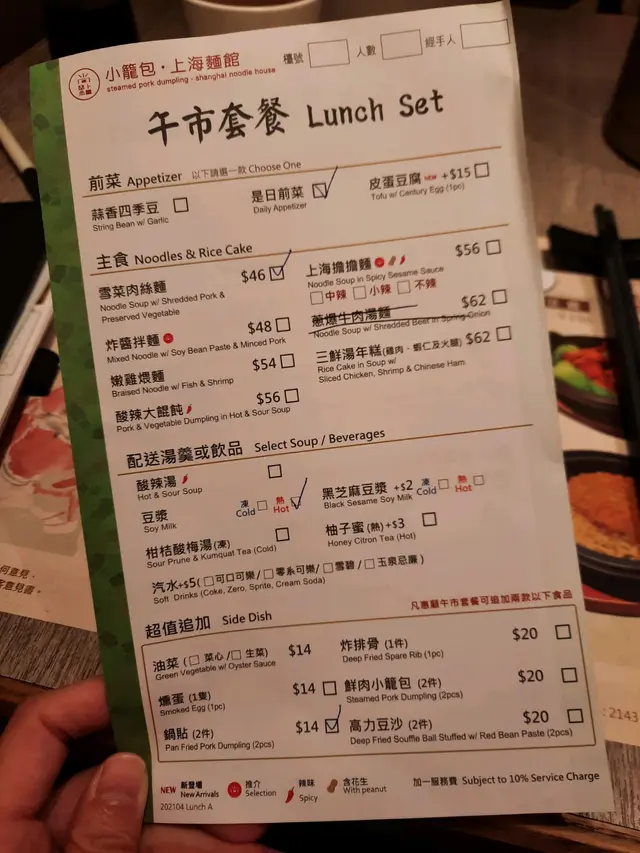 小籠包·上海麵館
steamed pork dumpling · shanghai noodle house
檯號 人數 經手人
午市套餐 Lunch Set
前菜 Appetizer 以下請選一款 Choose One
蒜香四季豆
String Bean w/ Garlic
是日前菜
Daily Appetizer
皮蛋豆腐 NEW +$15
Tofu w/ Century Egg (1pc)
主食 Noodles & Rice Cake
雪菜肉絲麵 $46
Noodle Soup w/ Shredded Pork &
Preserved Vegetable
炸醬拌麵 $48
Mixed Noodle w/ Soy Bean Paste & Minced Pork
嫩雞煨麵 $54
Braised Noodle w/ Fish & Shrimp
酸辣大餛飩 $56
Pork & Vegetable Dumpling in Hot & Sour Soup
上海擔擔麵 $56
Noodle Soup in Spicy Sesame Sauce
中辣 小辣 不辣
蔥爆牛肉湯麵 $62
Noodle Soup w/ Shredded Beef in Spring Onion
三鮮湯年糕(雞肉、蝦仁及火腿) $62
Rice Cake in Soup w/
Sliced Chicken, Shrimp & Chinese Ham
配送湯羹或飲品 Select Soup / Beverages
酸辣湯
Hot & Sour Soup
豆漿 凍 熱
Soy Milk Cold Hot
柑桔酸梅湯(凍)
Sour Prune & Kumquat Tea (Cold)
黑芝麻豆漿 +$2 凍 熱
Black Sesame Soy Milk Cold Hot
柚子蜜(熱)+$3
Honey Citron Tea (Hot)
汽水+$5(可口可樂/零系可樂/雪碧/玉泉忌廉)
Soft Drinks (Coke, Zero, Sprite, Cream Soda)
超值追加 Side Dish 凡惠顧午市套餐可追加兩款以下食品
油菜(菜心/生菜) $14
Green Vegetable w/ Oyster Sauce
燻蛋(1隻) $14
Smoked Egg (1pc)
鍋貼(2件) $14
Pan Fried Pork Dumpling (2pcs)
炸排骨(1件) $20
Deep Fried Spare Rib (1pc)
鮮肉小籠包(2件) $20
Steamed Pork Dumpling (2pcs)
高力豆沙(2件) $20
Deep Fried Souffle Ball Stuffed w/ Red Bean Paste (2pcs)
NEW 新登場 推介 辣味 含花生 加一服務費 Subject to 10% Service Charge
New Arrivals Selection Spicy With peanut
202104 Lunch A
: 2143